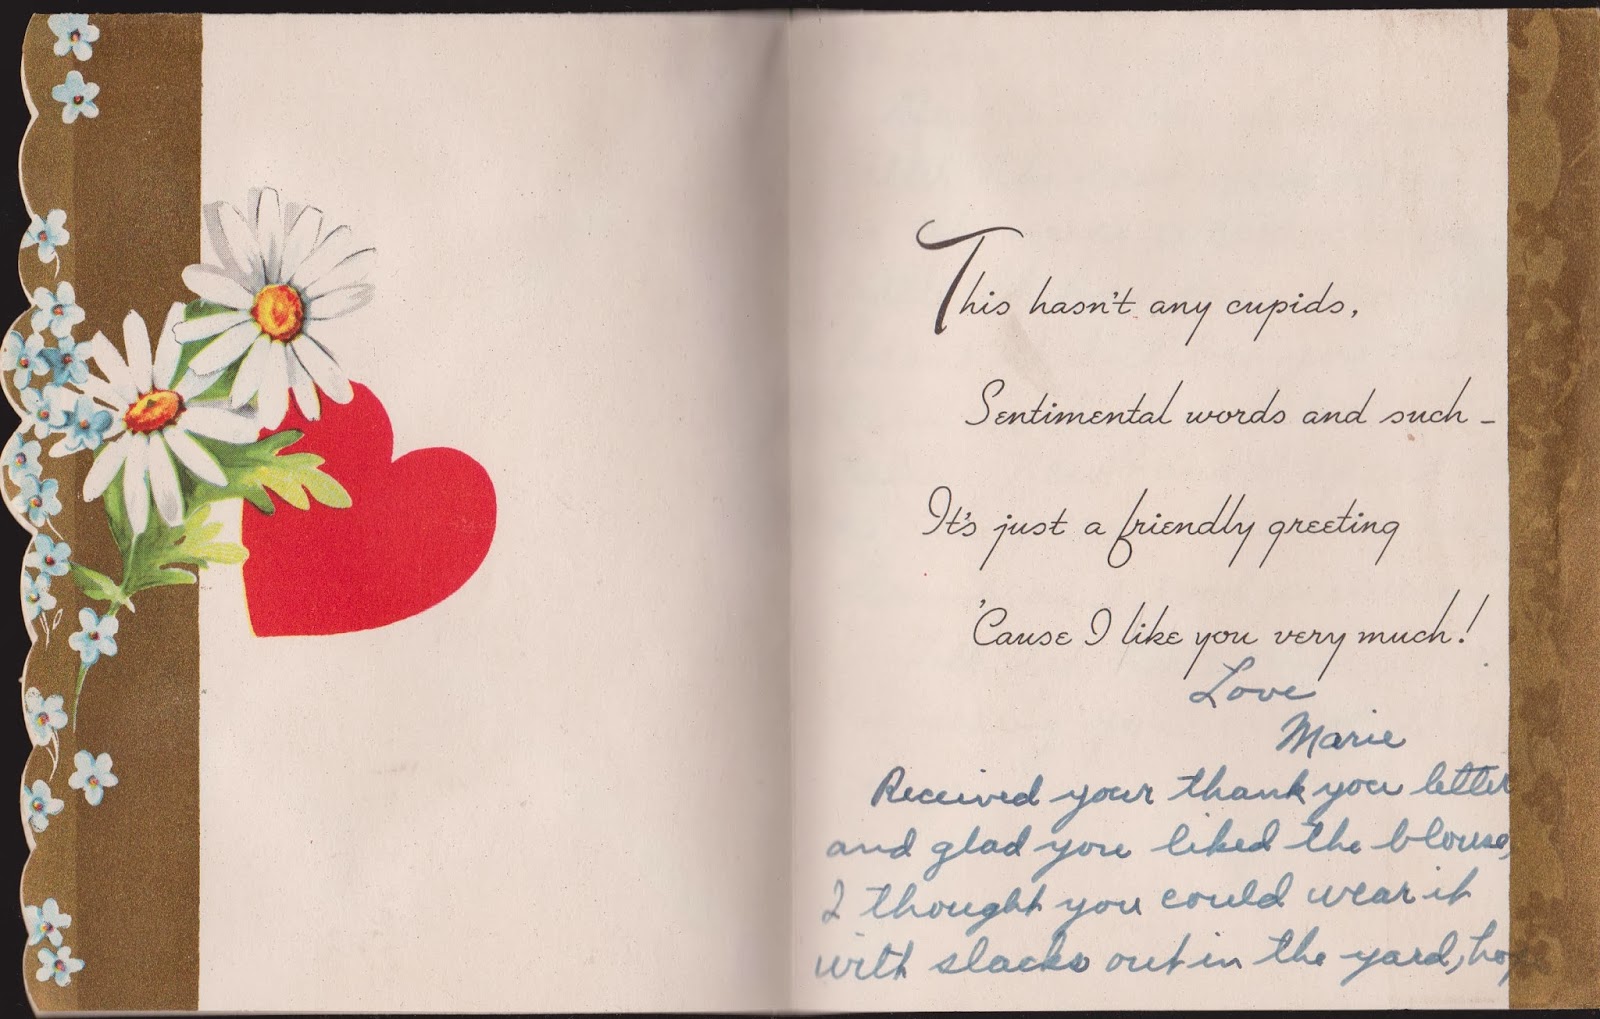 This hasn't any cupids,
Sentimental words and such -
It's just a friendly greeting
'Cause I like you very much!
Love
Marie
Received your thank you letter
and glad you liked the blouse,
I thought you could wear it
with slacks out in the yard,